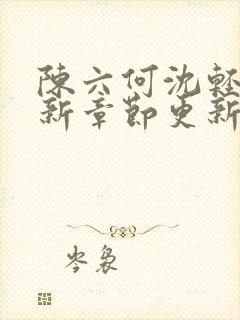 陳六何沈輕
新章節更新
岑裊